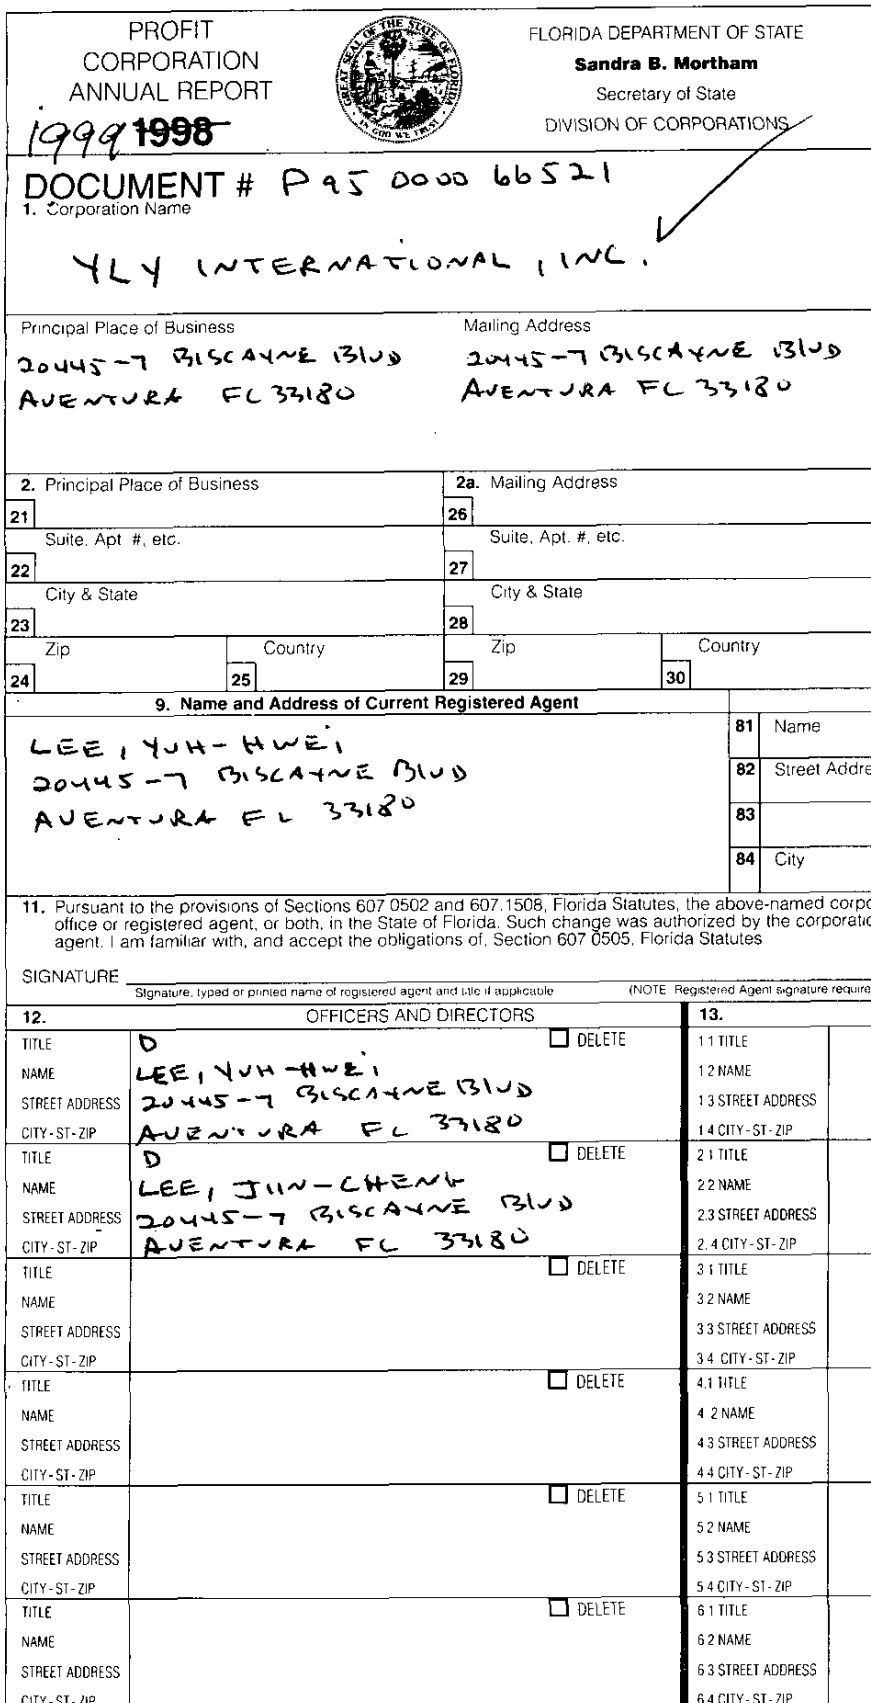 PROFIT
CORPORATION
ANNUAL REPORT
1999 1998
GREAT SEAL OF THE STATE OF FLORIDA
IN GOD WE TRUST
FLORIDA DEPARTMENT OF STATE
Sandra B. Mortham
Secretary of State
DIVISION OF CORPORATIONS
DOCUMENT # P95 0000 66521
1. Corporation Name
YLY INTERNATIONAL, INC.
Principal Place of Business
20445-7 BISCAYNE BLVD
AVENTURA FL 33180
Mailing Address
20445-7 BISCAYNE BLVD
AVENTURA FL 33180
2. Principal Place of Business
2a. Mailing Address
21
26
Suite, Apt #, etc.
Suite, Apt. #, etc.
22
27
City & State
City & State
23
28
Zip
Country
Zip
Country
24
25
29
30
9. Name and Address of Current Registered Agent
LEE, YUH-HWEI
20445-7 BISCAYNE BLVD
AVENTURA FL 33180
81 Name
82 Street Addre
83
84 City
11. Pursuant to the provisions of Sections 607 0502 and 607.1508, Florida Statutes, the above-named corpo
office or registered agent, or both, in the State of Florida. Such change was authorized by the corporatio
agent. I am familiar with, and accept the obligations of, Section 607 0505, Florida Statutes
SIGNATURE
Signature, typed or printed name of registered agent and title if applicable
(NOTE Registered Agent signature require
12. OFFICERS AND DIRECTORS
13.
TITLE D DELETE
NAME LEE, YUH-HWEI
STREET ADDRESS 20445-7 BISCAYNE BLVD
CITY-ST-ZIP AVENTURA FL 33180
1 1 TITLE
1 2 NAME
1 3 STREET ADDRESS
1 4 CITY-ST-ZIP
TITLE D DELETE
NAME LEE, JIIN-CHENG
STREET ADDRESS 20445-7 BISCAYNE BLVD
CITY-ST-ZIP AVENTURA FL 33180
2 1 TITLE
2 2 NAME
2.3 STREET ADDRESS
2.4 CITY-ST-ZIP
TITLE DELETE
NAME
STREET ADDRESS
CITY-ST-ZIP
3 1 TITLE
3 2 NAME
3 3 STREET ADDRESS
3 4 CITY-ST-ZIP
TITLE DELETE
NAME
STREET ADDRESS
CITY-ST-ZIP
4.1 TITLE
4 2 NAME
4 3 STREET ADDRESS
4 4 CITY-ST-ZIP
TITLE DELETE
NAME
STREET ADDRESS
CITY-ST-ZIP
5 1 TITLE
5 2 NAME
5 3 STREET ADDRESS
5 4 CITY-ST-ZIP
TITLE DELETE
NAME
STREET ADDRESS
CITY-ST-ZIP
6 1 TITLE
6 2 NAME
6 3 STREET ADDRESS
6 4 CITY-ST-ZIP